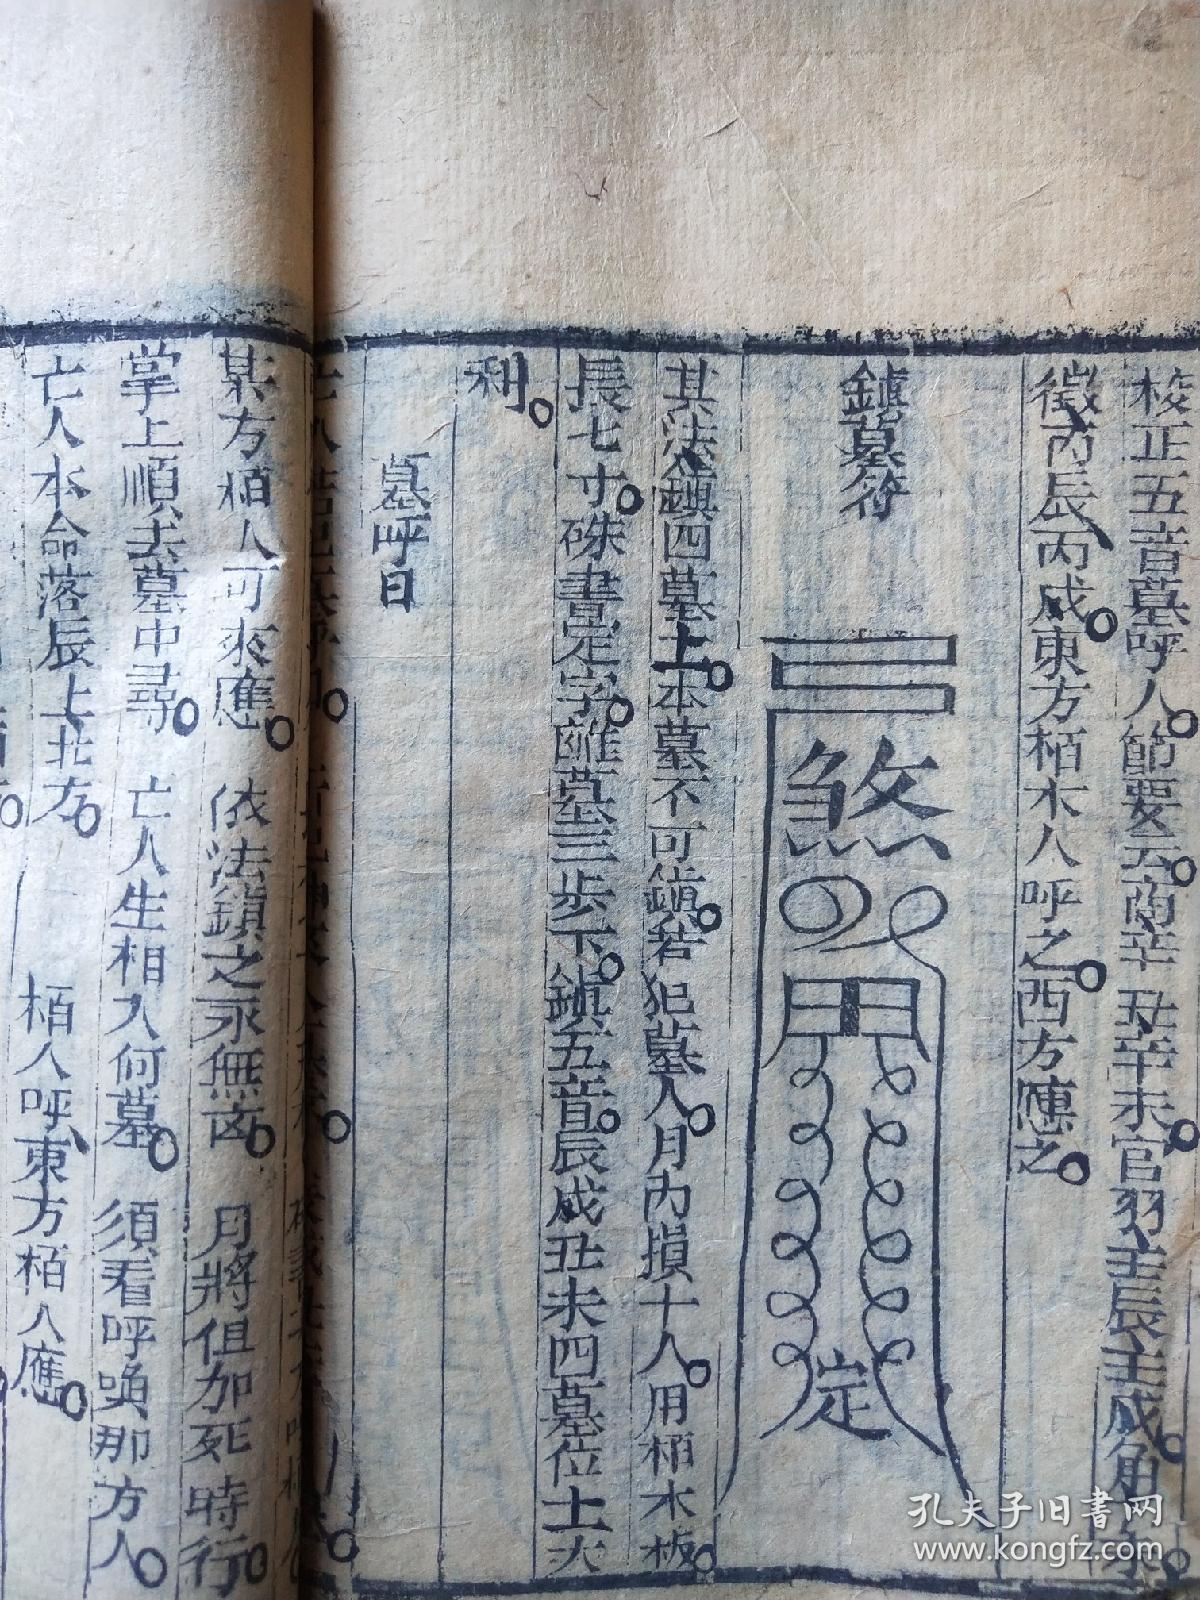 校正五音墓呼人節要云啇辛丑辛未宫羽壬辰壬戍角
徵丙辰丙戍東方栢木人呼之西方應之
鎮墓符
煞
定
其法鎮四墓上本墓不可鎮若犯墓人月内損十人用栢木板
長七寸硃書定字離墓三步下鎮五音辰戍丑未四墓位上大
利
墓呼日
某方栢人可來應 依法鎮之永無凶 月將但加死時行
掌上順去墓中尋 亡人生相入何墓 須看呼喚那方人
亡人本命落辰上北方 栢人呼東方栢人應
孔夫子旧書网
www.kongfz.com